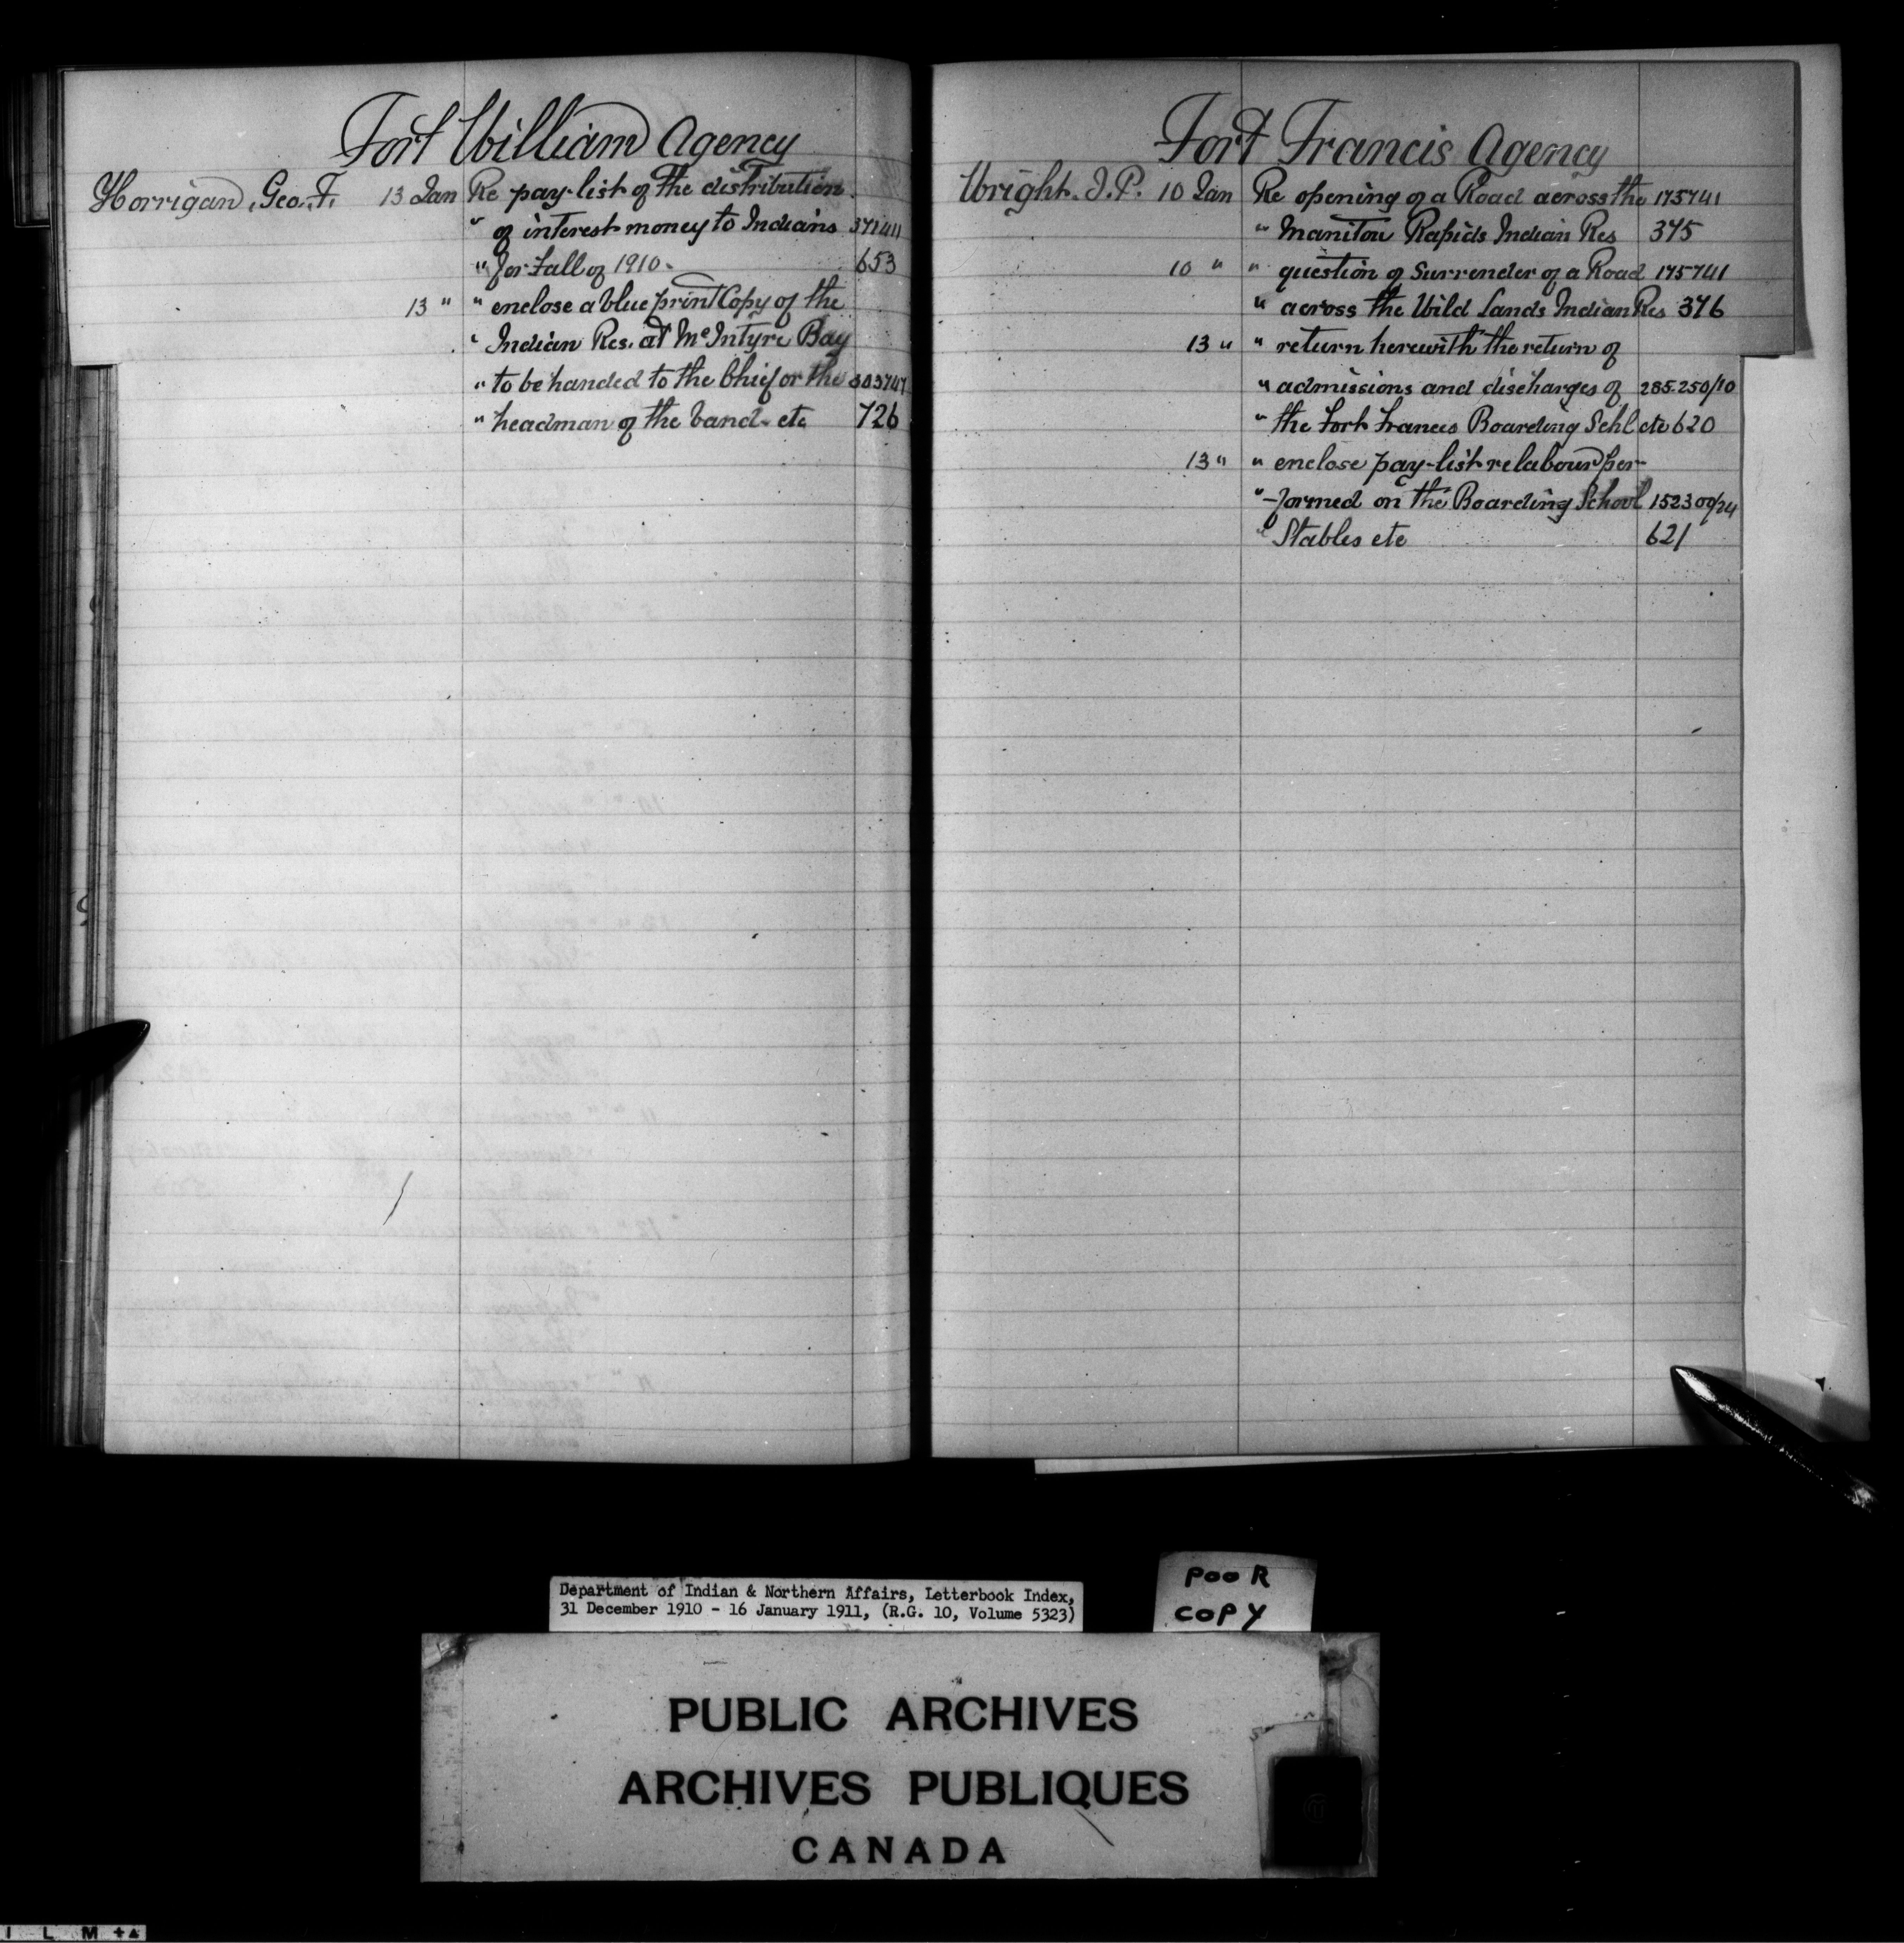 Fort William Agency
Horrigan, Geo. F. 13 Jan Re pay-list of the distribution
" of interest money to Indians 371411
" for Fall of 1910. 653
13 " " enclose a blue print Copy of the
" Indian Res. at McIntyre Bay
" to be handed to the Chief or the 303747
" headman of the band. etc 726
Fort Francis Agency
Wright. J. P. 10 Jan Re opening of a Road across the 175741
" Manitou Rapids Indian Res 375
10 " " question of Surrender of a Road 175741
" across the Wild Lands Indian Res 376
13 " " return herewith the return of
" admissions and discharges of 285.250/10
" the Fort Francis Boarding Schl etc 620
13 " " enclose pay-list re labour per-
" -formed on the Boarding School 152300/24
" Stables etc 621
Department of Indian & Northern Affairs, Letterbook Index,
31 December 1910 - 16 January 1911, (R.G. 10, Volume 5323)
POOR
COPY
PUBLIC ARCHIVES
ARCHIVES PUBLIQUES
CANADA
I L M +▲